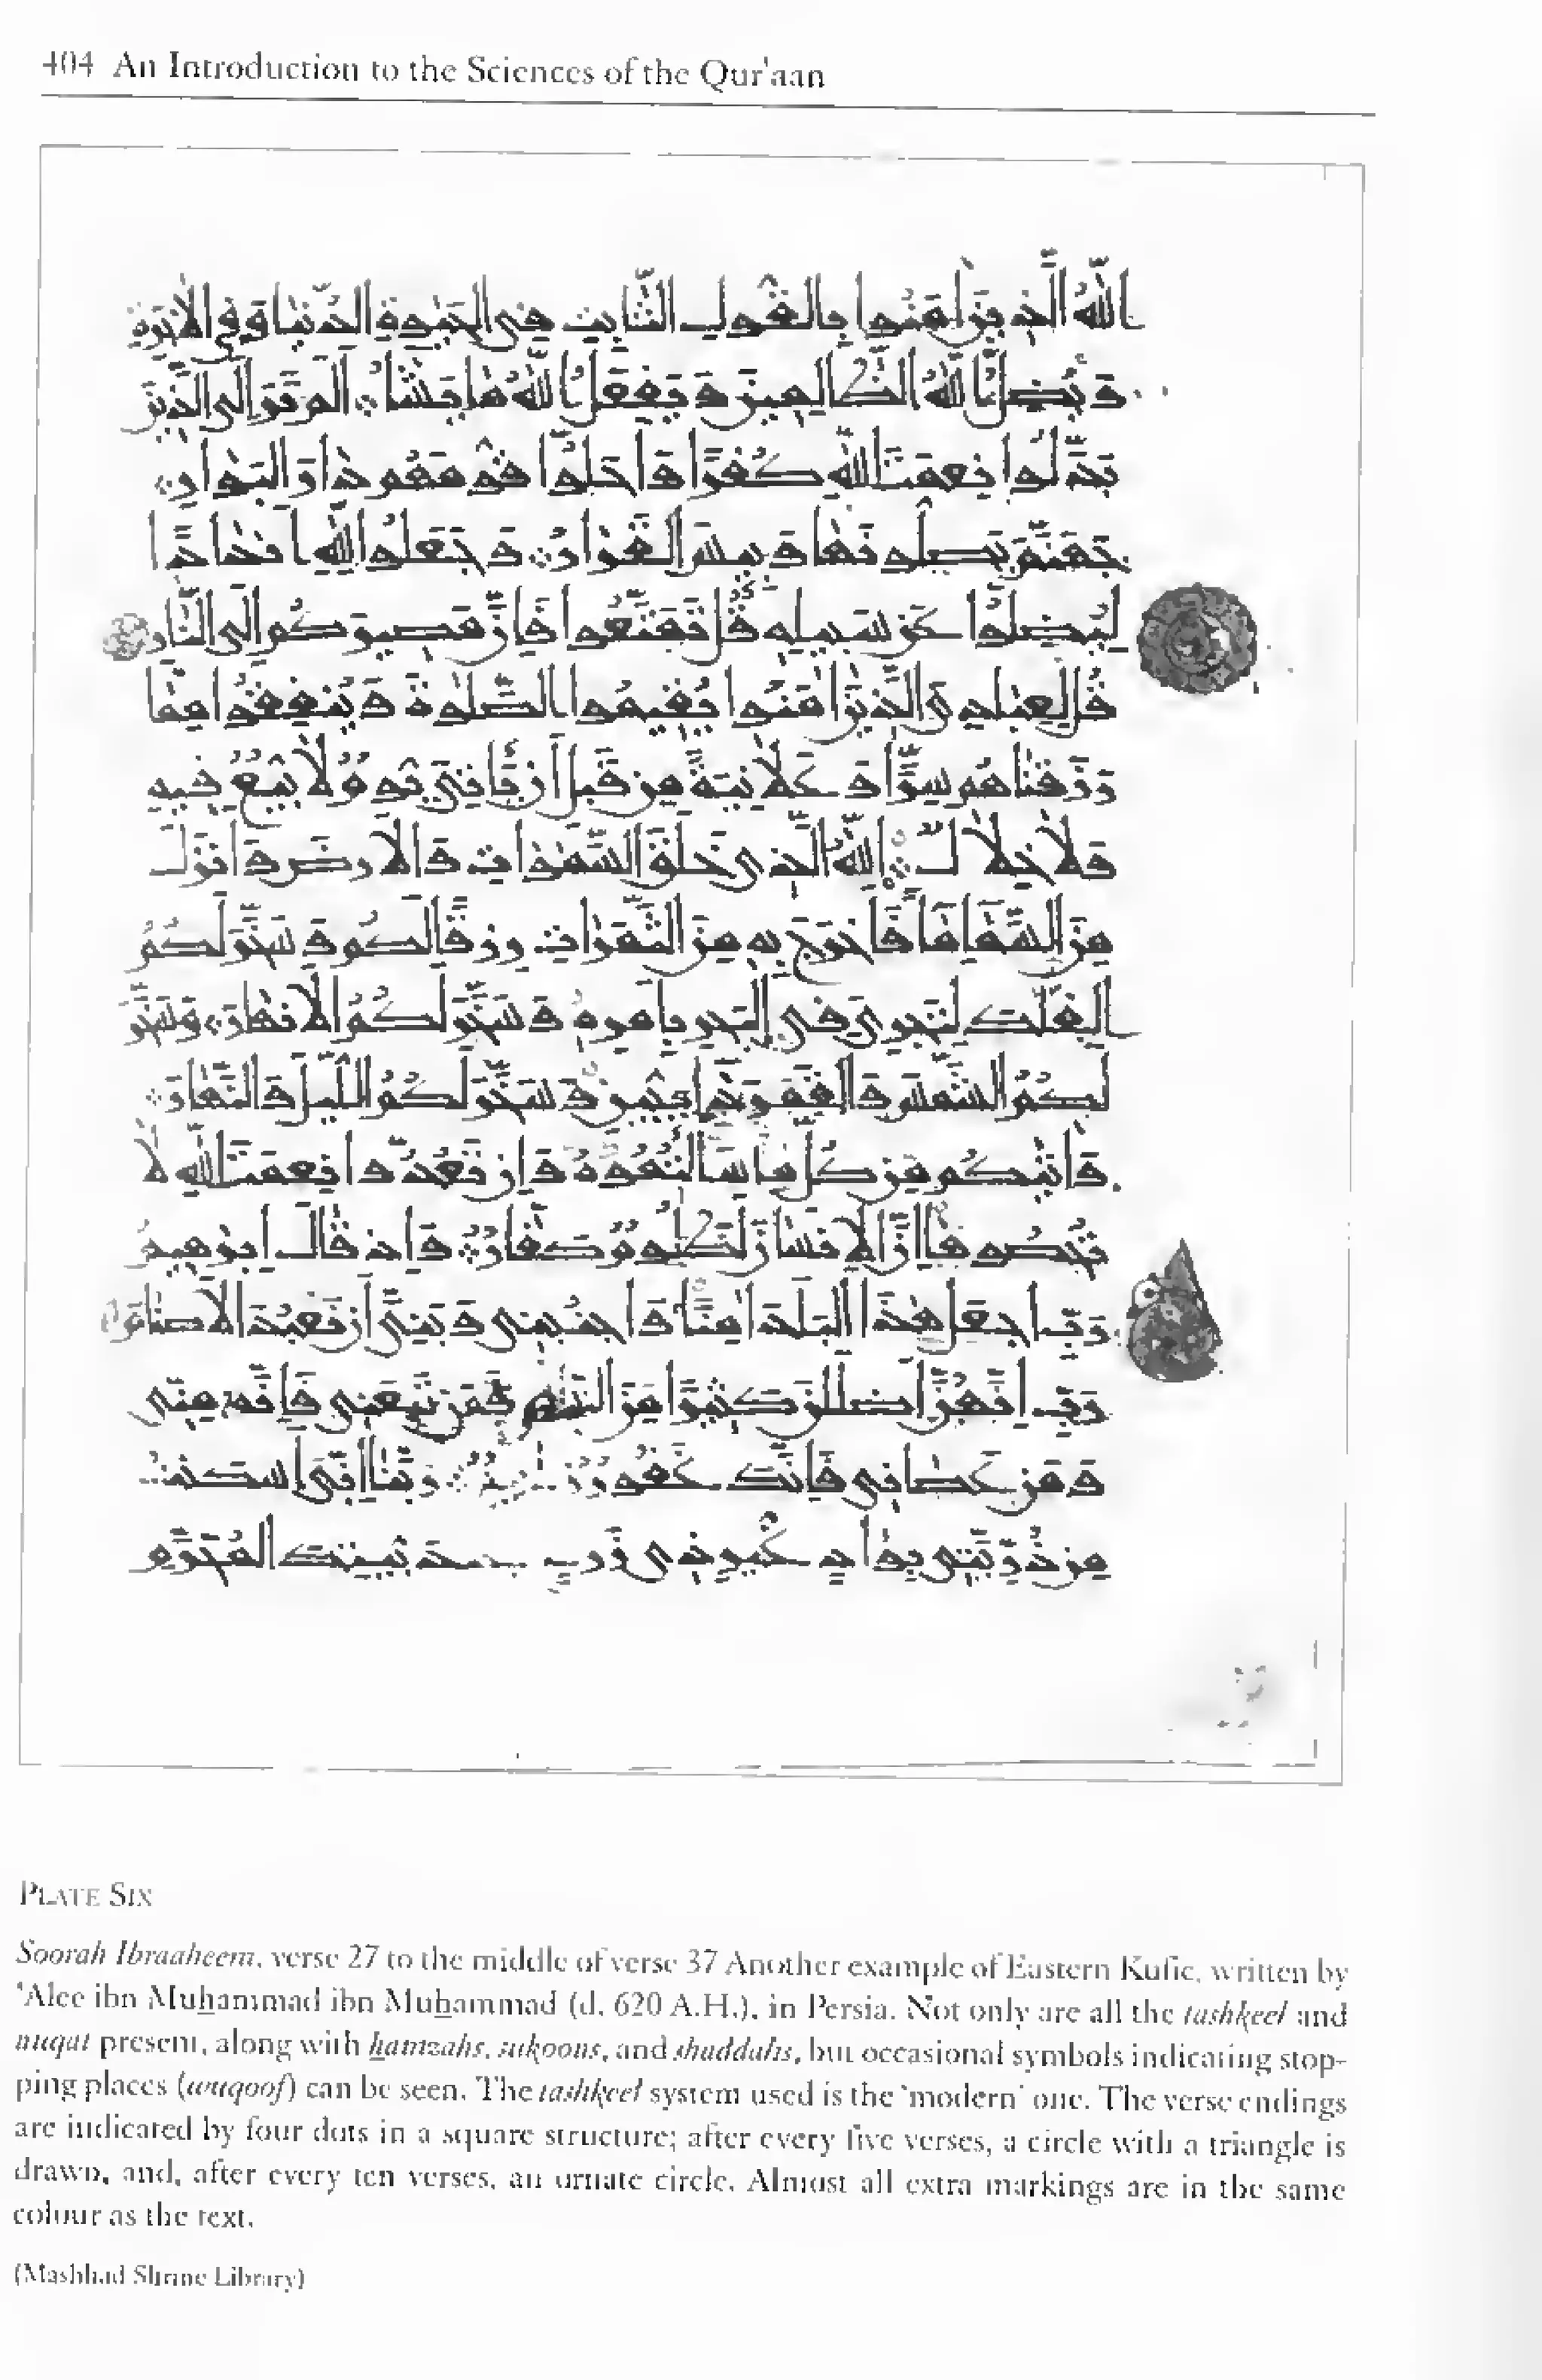 404 An Introduction to the Sciences of the Qur'aan
الله الذين امنوا بالقول الثابت في الحيوة الدنيا وفي الاخرة
ويضل الله الظالمين ويفعل الله ما يشاء الم تر الى الذين
بدلوا نعمت الله كفرا واحلوا قومهم دار البوار
جهنم يصلونها وبئس القرار وجعلوا لله اندادا
ليضلوا عن سبيله قل تمتعوا فان مصيركم الى النار
قل لعبادي الذين امنوا يقيموا الصلوة وينفقوا مما
رزقناهم سرا وعلانية من قبل ان ياتي يوم لا بيع فيه
ولا خلال الله الذي خلق السموات والارض وانزل
من السماء ماء فاخرج به من الثمرات رزقا لكم وسخر لكم
الفلك لتجري في البحر بامره وسخر لكم الانهار وسخر
لكم الشمس والقمر دائبين وسخر لكم الليل والنهار
واتيكم من كل ما سالتموه وان تعدوا نعمت الله لا
تحصوها ان الانسان لظلوم كفار واذ قال ابرهيم
رب اجعل هذا البلد امنا واجنبني وبني ان نعبد الاصنام
رب انهن اضللن كثيرا من الناس فمن تبعني فانه مني
ومن عصاني فانك غفور رحيم ربنا اني اسكنت
من ذريتي بواد غير ذي زرع عند بيتك المحرم
PLATE SIX
Soorah Ibraaheem, verse 27 to the middle of verse 37 Another example of Eastern Kufic, written by
'Alee ibn Muhammad ibn Muhammad (d. 620 A.H.), in Persia. Not only are all the tashkeel and
nuqat present, along with hamzahs, sukoons, and shaddahs, but occasional symbols indicating stop-
ping places (wuqoof) can be seen. The tashkeel system used is the 'modern' one. The verse endings
are indicated by four dots in a square structure; after every five verses, a circle with a triangle is
drawn, and, after every ten verses, an ornate circle. Almost all extra markings are in the same
colour as the text.
(Mashhad Shrine Library)